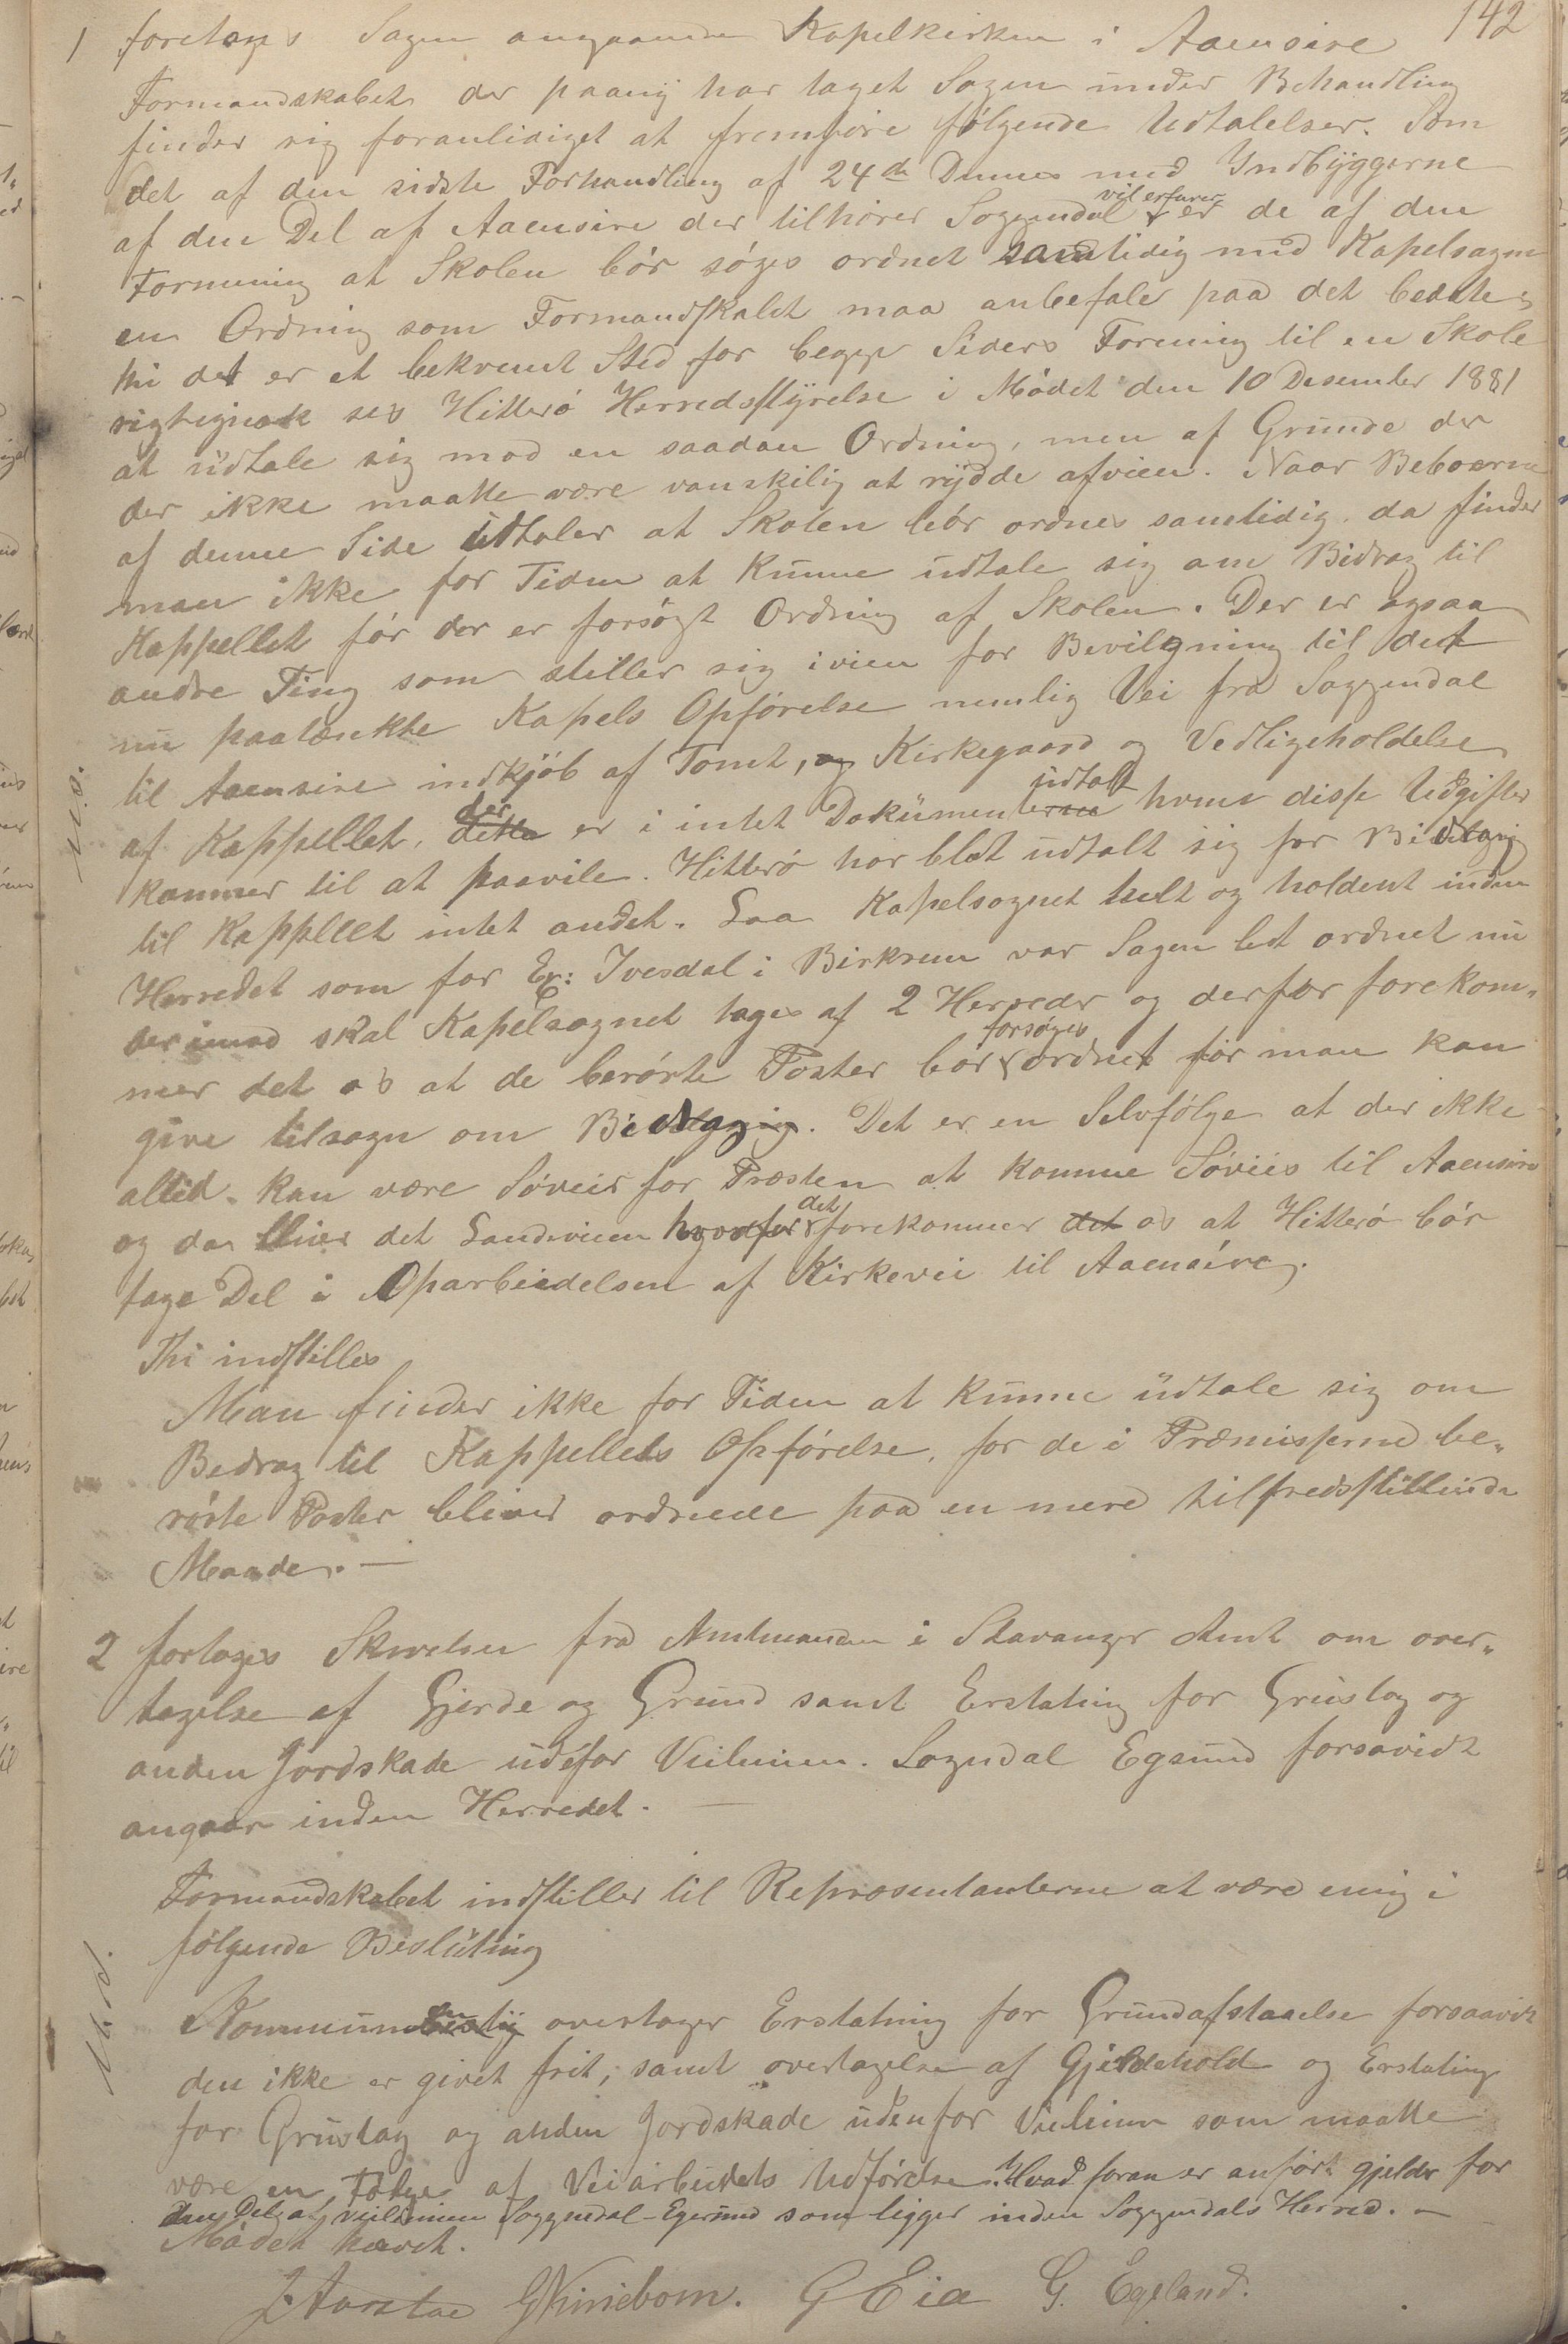 142
1 foretages Sagen angaaende Kapelkirken i Aaensire
Formandskabet der paany har taget Sagen under Behandling
finder sig foranlidiget at fremføre følgende Udtalelser. Som
det af den sidste Forhandling af 24de Dennes med Indbyggerne
af den Del af Aaensire der tilhører Soggendal vil erfares er de af den
Formening at Skolen bør søges ordnet samtidig med Kapelsagen
en Ordning som Formandskabet maa anbefale paa det bedste,
thi det er et bekvemt Sted for begge Siders Forening til en Skole
rigtignok ses Hitterø Herredsstyrelse i Mødet den 10 Desember 1881
at udtale sig mod en saadan Ordning, men af Grunde der
der ikke maatte være vanskilig at rydde afveien. Naar Beboerne
af denne Side udtaler at Skolen bør ordnes samtidig, da finder
man ikke for Tiden at kunne udtale sig om Bidrag til
Kappellet før der er forsøgt Ordning af Skolen. Der er ogsaa
andre Ting som stiller sig iveien for Bevilgning til det
nu paatænkte Kapels Opførelse nemlig Vei fra Soggendal
til Aaensire indkjøb af Tomt, og Kirkegaard og Vedligeholdelse
af Kappellet, dette der er i intet Dokumenterne udtalt hvem disse Udgifter
kommer til at paavile. Hitterø har blot udtalt sig for Bidrag
til Kappellet intet andet. Laa Kapelsognet helt og holdent inden
Herredet som for Ex: Ivesdal i Birkrem var Sagen let ordnet nu
derimod skal Kapelsognet tages af 2 Herreder og derfor forekom„
mer det os at de berørte Poster bør forsøges ordnet før man kan
give tilsagn om Bidrag. Det er en Selvfølge at der ikke
altid kan være Søveir for Præsten at komme Søveis til Aaensire
og da bliver det Landeveien hvorfor det forekommer det os at Hitterø bør
tage Del i Oparbeidelsen af Kirkevei til Aaensire.
Thi indstilles
Man finder ikke for Tiden at kunne udtale sig om
Bedrag til Kappellets Opførelse, før de i Præmisserne be„
rørte Poster bliver ordnede paa en mere tilfredsstillende
Maade. —
2 fortoges Skrivelse fra Amtmanden i Stavanger Amt om over„
tagelse af Gjerde og Grund samt Erstatning for Grustag og
anden Jordskade udefor Veilinien. Sogndal Egsund forsavidt
angaar inden Herredet. —
Formandskabet indstiller til Repræsentanterne at være enig i
følgende Beslutning
Kommunen overtager Erstatning for Grundafstaaelse forsaavidt
den ikke er givet frit, samt overtagelse af Gjerdehold og Erstatning
for Grustag og anden Jordskade udenfor Veilinien som maatte
være en Følge af Veiarbeidets Udførelse. Hvad foran er anført gjelder for
den Del af veilinien Soggendal-Egersund som ligger inden Soggendals Herred. —
Mødet hævet.
J Aarstad G Kinnebom. G Eia G. Egeland.